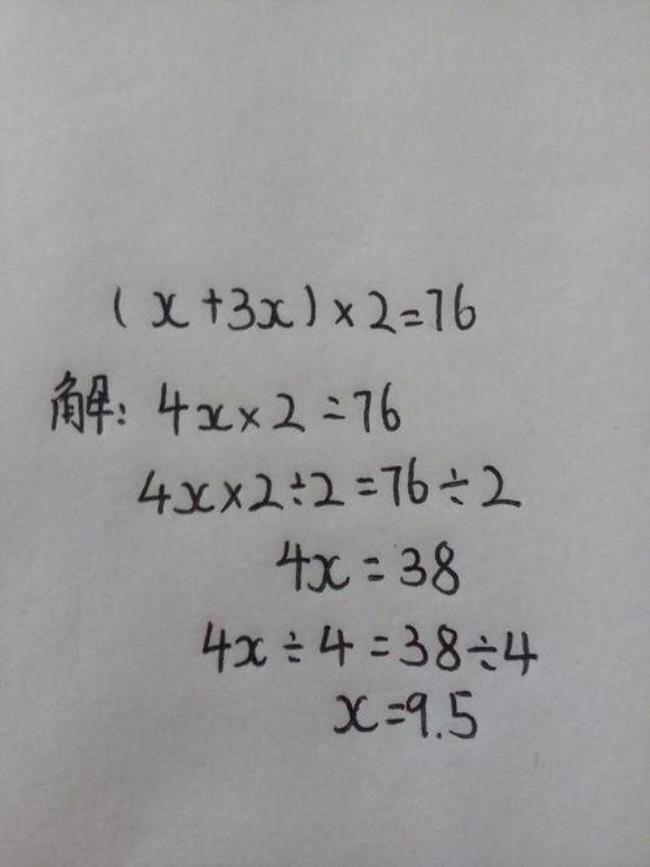 (x+3x)×2=76
解: 4x×2=76
4x×2÷2=76÷2
4x=38
4x÷4=38÷4
x=9.5